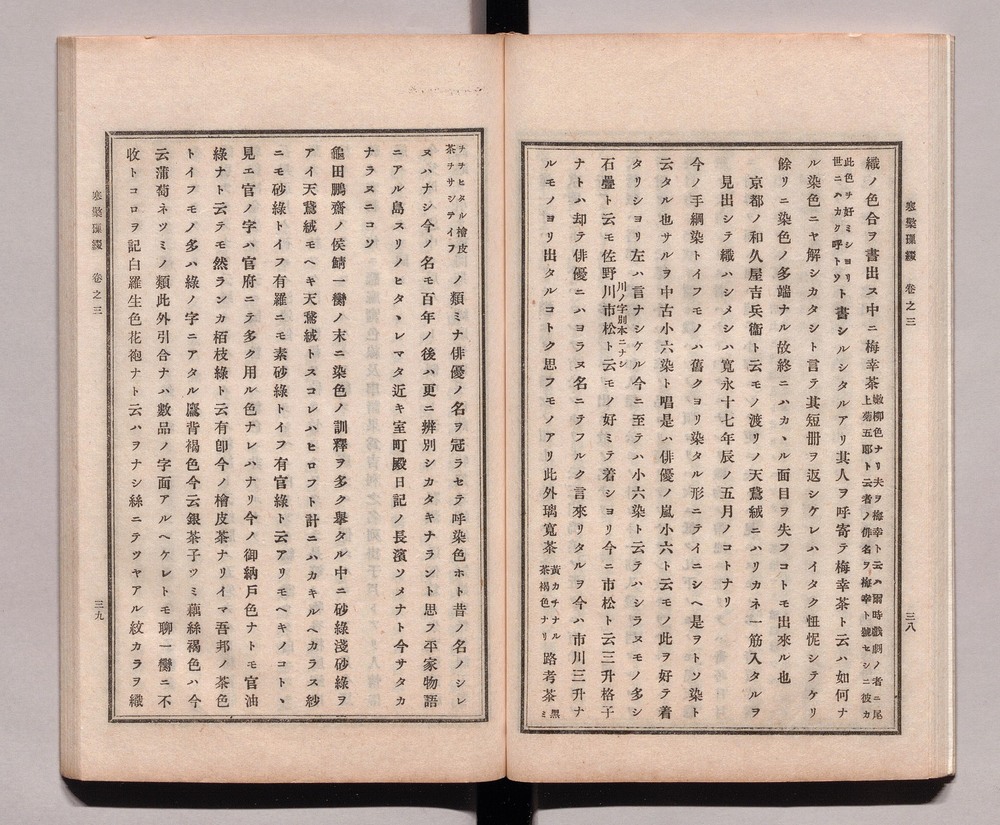 寒檠璅綴　卷之三　三八
織ノ色合ヲ書出ス中ニ梅幸茶嫩柳色ナリ夫ヲ梅幸ト云ハ爾時戲劇ノ者ニ尾上菊五郎ト云者ノ俳名ヲ梅幸ト號セシニ彼カ
此色ヲ好ミシヨリ世ニハカク呼トソト書シルシタルアリ其人ヲ呼寄テ梅幸茶ト云ハ如何ナ
ル染色ニヤ解シカタシト言テ其短册ヲ返シケレハイタク忸怩シテケリ
餘リニ染色ノ多端ナル故終ニハカヽル面目ヲ失フコトモ出來ル也
京都ノ和久屋吉兵衞ト云モノ渡リノ天鵞絨ニハリカネ一筋入タルヲ
見出シテ織ハシメシハ寬永十七年辰ノ五月ノコトナリ
今ノ手綱染トイフモノハ舊クヨリ染タル形ニテイニシヘハ是ヲトソ染ト
云タル也サルヲ中古小六染ト唱是ハ俳優ノ嵐小六ト云モノ此ヲ好テ着
タリショリ左ハ言ナシケル今ニ至テハ小六染ト云テハシラヌモノ多シ
川ノ字別本ニナシ
石疊ト云モ佐野川市松ト云モノ好ミテ着ショリ今ニ市松ト云三升格子
ナトハ却テ俳優ニハヨラヌ名ニテフルク言來リタルヲ今ハ市川三升ナ
ルモノヨリ出タルコトク思フモノアリ此外璃寬茶黃カチナル茶褐色ナリ路考茶黑ミ
チサヒタル檜皮茶チサシテイフノ類ミナ俳優ノ名ヲ冠ラセテ呼染色ホト昔ノ名ノシレ
ヌハナシ今ノ名モ百年ノ後ハ更ニ辨別シカタキナラント思フ平家物語
ニアル島スリノヒタヽレマタ近キ室町殿日記ノ長濱ソメナト今サタカ
ナラヌニコソ
龜田鵬齋ノ侯鯖一臠ノ末ニ染色ノ訓釋ヲ多ク擧タル中ニ砂綠淺砂綠ヲ
アイ天鵞絨モヘキ天鵞絨トスコレハヒロフト計ニハカキルヘカラス紗
ニモ砂綠トイフ有羅ニモ素砂綠トイフ有官綠ト云アリモヘキノコトヽ
見エ官ノ字ハ官府ニテ多ク用ル色ナレハナリ今ノ御納戸色ナトモ官油
綠ナト云テモ然ランカ栢枝綠ト云有卽今ノ檜皮茶ナリイマ吾邦ノ茶色
トイフモノ多ハ綠ノ字ニアタル鷹背褐色今云銀茶子ツミ藕絲褐色ハ今
云蒲萄ネツミノ類此外引合ナハ數品ノ字面アルヘケレトモ聊一臠ニ不
收トコロヲ記白羅生色花袍ナト云ハヲナシ絲ニテツヤアル紋カラヲ織
寒檠璅綴　卷之三　三九